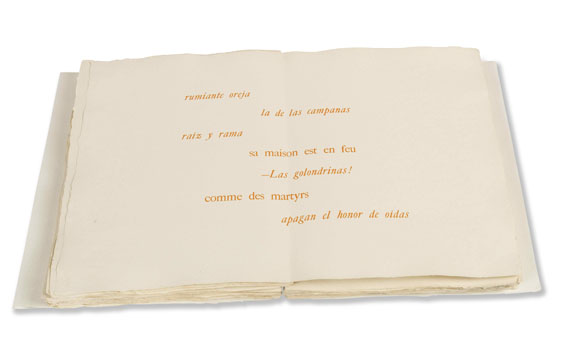 rumiante oreja
la de las campanas
raíz y rama
sa maison est en feu
—Las golondrinas!
comme des martyrs
apagan el honor de oídas